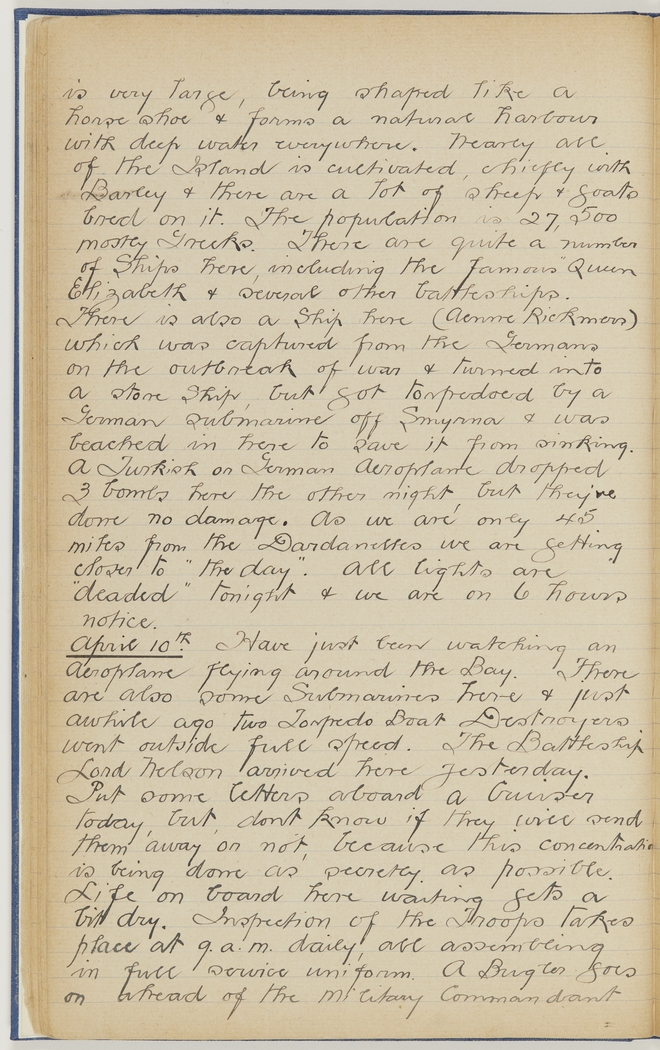 is very large, being shaped like a
horse shoe & forms a natural harbour
with deep water everywhere. Nearly all
of the Island is cultivated, chiefly with
Barley & there are a lot of sheep & goats
bred on it. The population is 27,500
mostly Greeks. There are quite a number
of Ships here, including the famous "Queen
Elizabeth & several other battleships.
There is also a Ship here (Aenne Rickmers)
which was captured from the Germans
on the outbreak of war & turned into
a store Ship, but got torpedoed by a
German submarine off Smyrna & was
beached in here to save it from sinking.
A Turkish or German Aeroplane dropped
3 bombs here the other night but they've
done no damage. As we are only 45
miles from the Dardanelles we are getting
closer to "the day". All lights are
"deaded" tonight & we are on 6 hours
notice.
April 10th. Have just been watching an
Aeroplane flying around the Bay. There
are also some Submarines here & just
awhile ago two Torpedo Boat Destroyers
went outside full speed. The Battleship
Lord Nelson arrived here yesterday.
Put some letters aboard a Cruiser
today, but dont know if they will send
them away or not, because this concentration
is being done as secretly as possible.
Life on board here waiting gets a
bit dry. Inspection of the Troops takes
place at 9.a.m. daily, all assembling
in full service uniform. A Bugler goes
on ahead of the Military Commandant